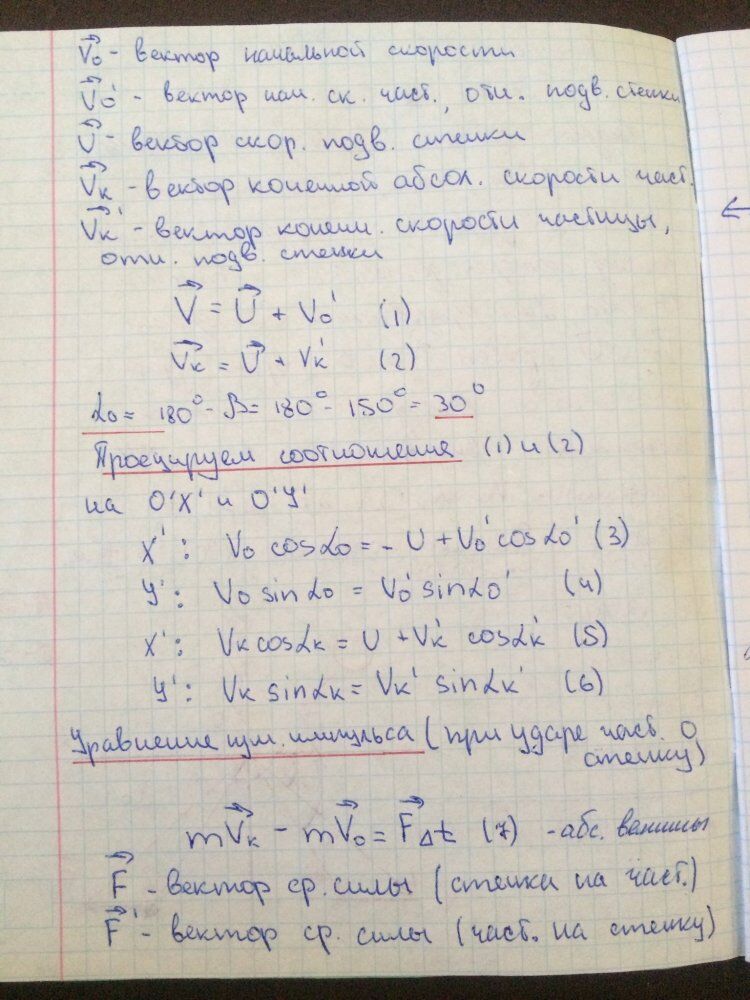 V⃗₀ - вектор начальной скорости
V⃗₀' - вектор нач. ск. част., отн. подв. стенки
U⃗ - вектор скор. подв. стенки
V⃗к - вектор конечной абсол. скорости част.
V⃗к' - вектор конечн. скорости частицы,
отн. подв. стенки
V⃗ = U⃗ + V₀' (1)
V⃗к = U⃗ + Vк' (2)
α₀ = 180° - β = 180° - 150° = 30°
Проецируем соотношения (1) и (2)
на O'X' и O'Y'
X': V₀ cosα₀ = - U + V₀' cosα₀' (3)
Y': V₀ sinα₀ = V₀' sinα₀' (4)
X': Vк cosαк = U + Vк' cosαк' (5)
Y': Vк sinαк = Vк' sinαк' (6)
Уравнение изм. импульса (при ударе част. о
стенку)
mV⃗к - mV⃗₀ = F⃗Δt (7) - абс. величины
F⃗ - вектор ср. силы (стенки на част.)
F⃗' - вектор ср. силы (част. на стенку)